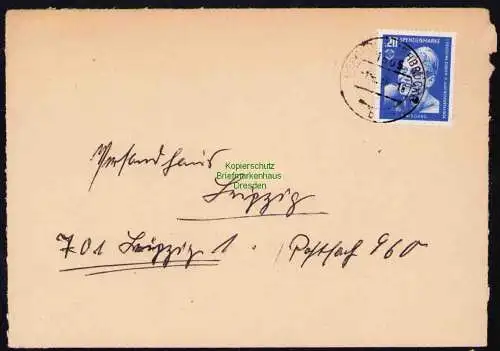 20
SPENDENMARKE
Versandhaus
Kopierschutz
Briefmarkenhaus
Dresden
Leipzig
701 Leipzig 1. Postfach 960